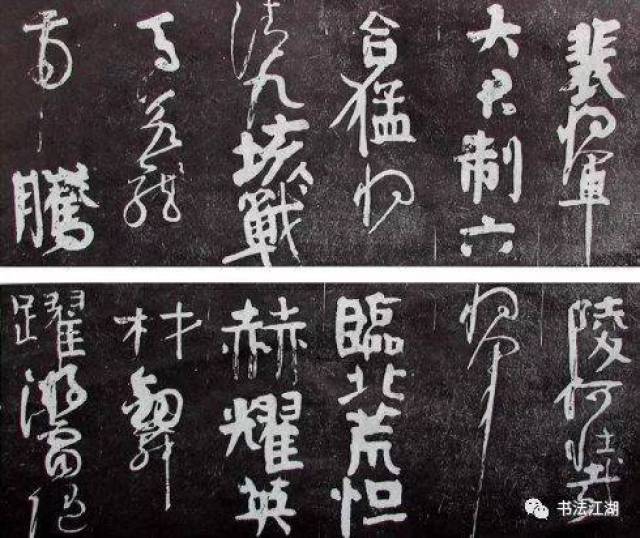 裴將軍
大君制六
合猛將
清九垓戰
馬若龍
虎騰
陵何壯哉
將軍
臨北荒烜
赫耀英
材劍舞
躍游電隨
书法江湖